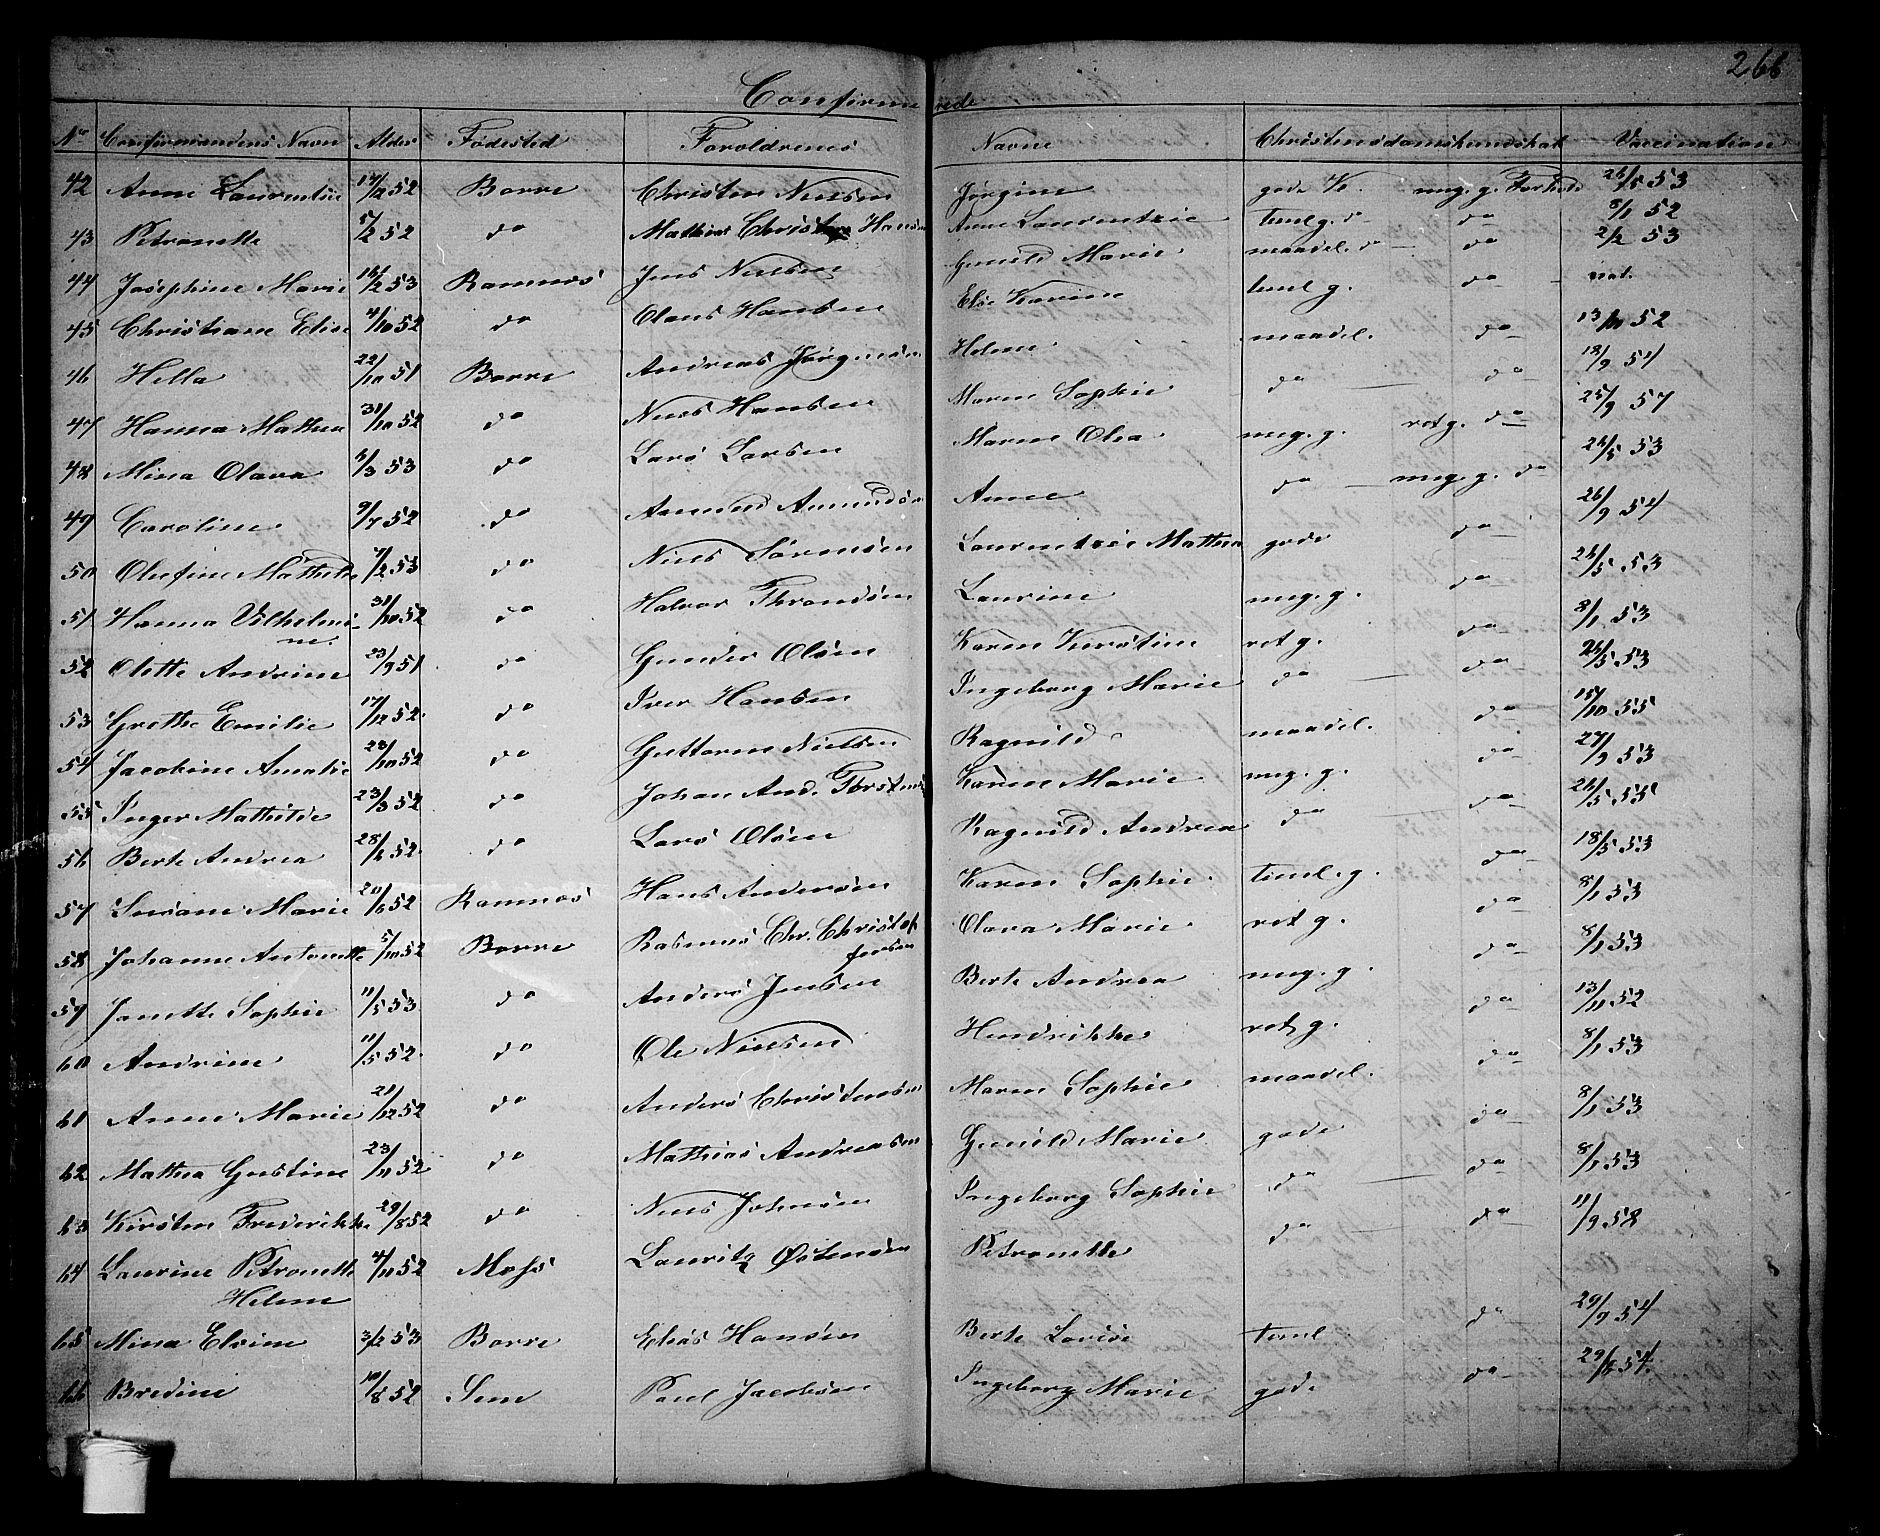 266
Confirmerede
No Confirmandens Navn Alder Fødested Forældrenes Navne Christendomskundskab Vaccination
42 Anne Laurentsie 14/2 52 Borre Christen Nielsen Jørgine gode K. meg. g. Forhold 26/5 53
43 Petronette 5/2 52 do Mathias Christian Hansen Anne Laurentzie teml g. do do 8/1 52
44 Josephine Marie 16/2 53 Ramnæs Jens Nielsen Gunild Marie maadel. do do 2/2 53
45 Christiane Elise 4/10 52 do Olaus Hansen Else Karine teml g. do nat.
46 Hella 22/10 51 Borre Andreas Jørgensen Helene maadel. do 13/11 52
47 Hanna Mathea 31/10 52 do Niels Hansen Maren Sophie do do 18/9 54
48 Mina Olava 3/3 53 do Lars Larsen Maren Olea meg. g. ret g. do 25/9 57
49 Caroline 9/7 52 do Amund Amundsen Anne do meg. g. do 26/5 53
50 Olufine Mathilde 7/2 53 do Niels Sørensen Laurentzie Mathea gode do 26/9 54
51 Hanna Vilhelmi- 31/10 52 do Halvor Throndsen Laurine meg. g. do 26/5 53
ne.
52 Olette Andrine 23/9 51 do Gunder Olsen Karen Kirstine ret g. do 8/1 53
53 Grethe Emilie 17/12 52 do Iver Hansen Ingeborg Marie do do 26/5 53
54 Jacobine Amalie 23/10 52 do Guttorm Nielsen Ragnild maadel. do 15/10 55
55 Inger Mathilde 23/3 52 do Johan And. Thorstens Karen Marie meg. g. do 27/9 53
56 Berte Andrea 28/1 52 do Lars Olsen Ragnild Andrea do do 26/5 55
57 Susane Marie 20/6 52 Ramnæs Hans Andersen Karen Sophie teml. g. do 18/5 53
58 Johanne Antonette 5/10 52 Borre Rasmus Chr. Christof Olava Marie ret g. do 8/1 53
fersen
59 Janette Sophie 11/5 53 do Anders Jensen Berte Andrea meg. g. do 8/1 53
60 Andrine 11/5 52 do Ole Nielsen Hendrikke ret g. do 13/11 52
61 Anne Marie 21/12 52 do Anders Christensen Maren Sophie maadel. do 8/1 53
62 Mathea Gustine 23/11 52 do Mathias Andreasen Gunild Marie gode do 8/1 53
63 Kirsten Frederikke 29/8 52 do Niels Johnsen Ingeborg Sophie do do 8/1 53
64 Laurine Petronette 4/11 52 Moss Lauritz Østensen Petronette do do 11/9 58
Helene
65 Mina Elvine 3/2 53 Borre Elias Hansen Berte Lovise teml do 29/9 54
66 Bredine 10/8 52 Sem Paul Jacobsen Ingeborg Marie gode do 29/8 54